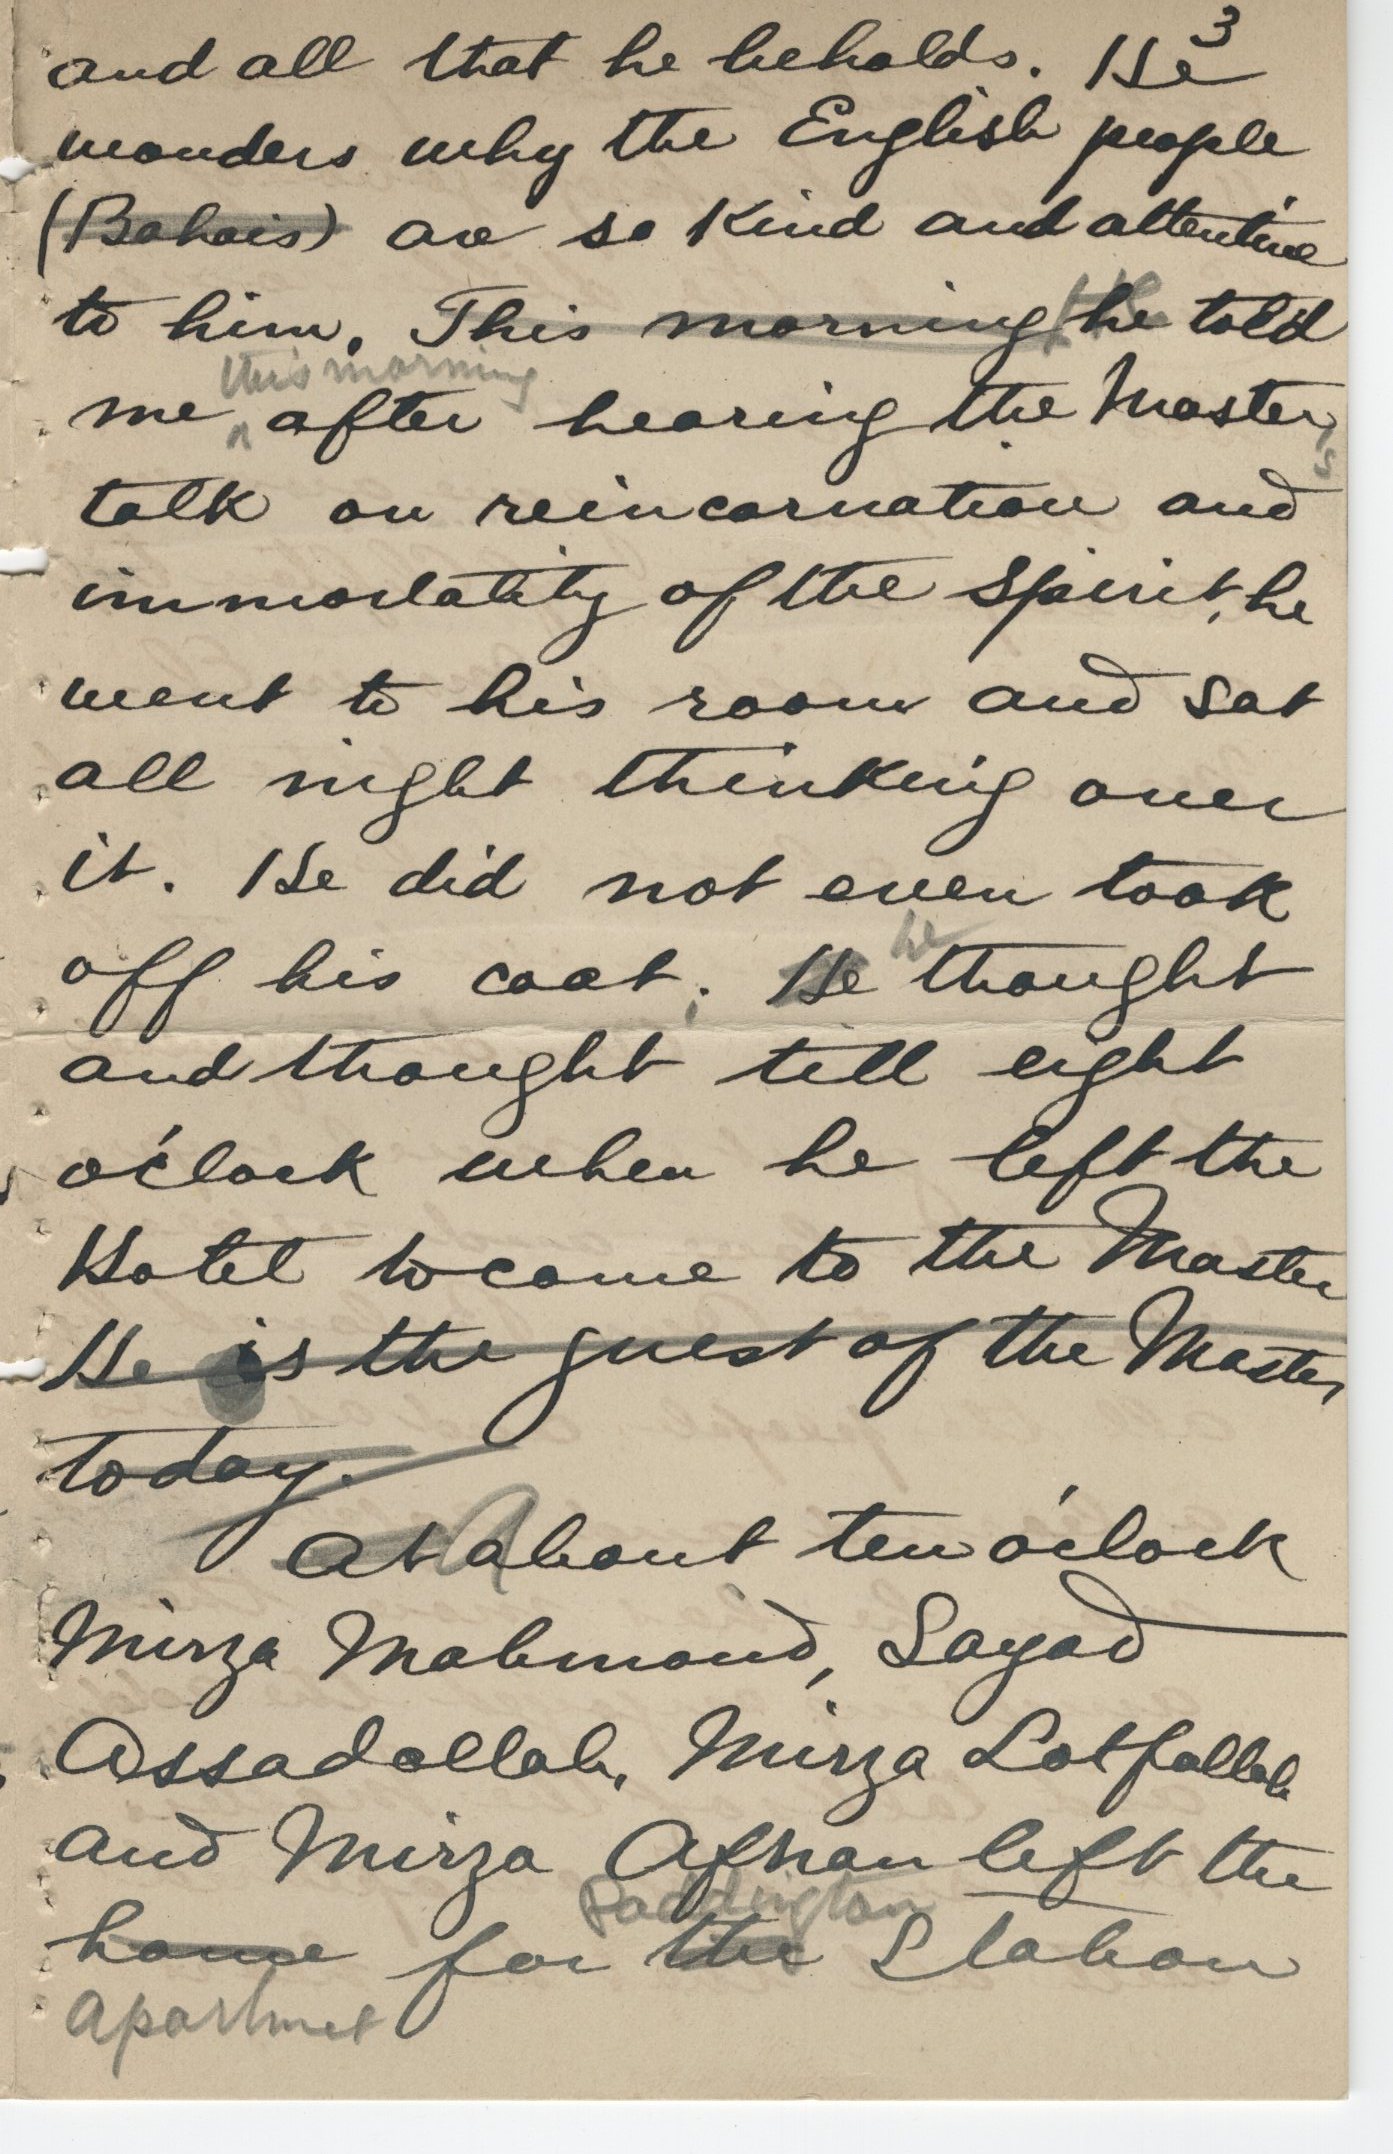 3
and all that he beholds. He
wonders why the English people
(Bahais) are so kind and attentive
to him. This morning He he told
this morning
me ^ after hearing the Master's
talk on reincarnation and
immortality of the spirit, he
went to his room and sat
all night thinking over
it. He did not even took
he
off his coat; He thought
and thought till eight
o'clock when he left the
Hotel to come to the Master
He is the guest of the Master
today.
At A about ten o'clock
Mirza Mahmoud, Sayad
Assadollah, Mirza Lotfallah
and Mirza Afnan left the
Paddington
home for the Station
Apartmet